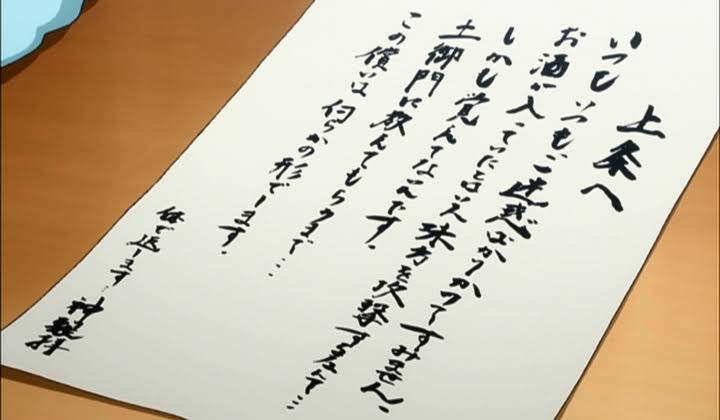 上条へ
いつもいつもご迷惑ばかりかけてすみません。
お酒が入っていたとはいえ味方を攻撃するなんて…
しかも覚えてないんです。
土御門に教えてもらうまで…
この償いは何らかの形でします。
体で返します。神裂拝